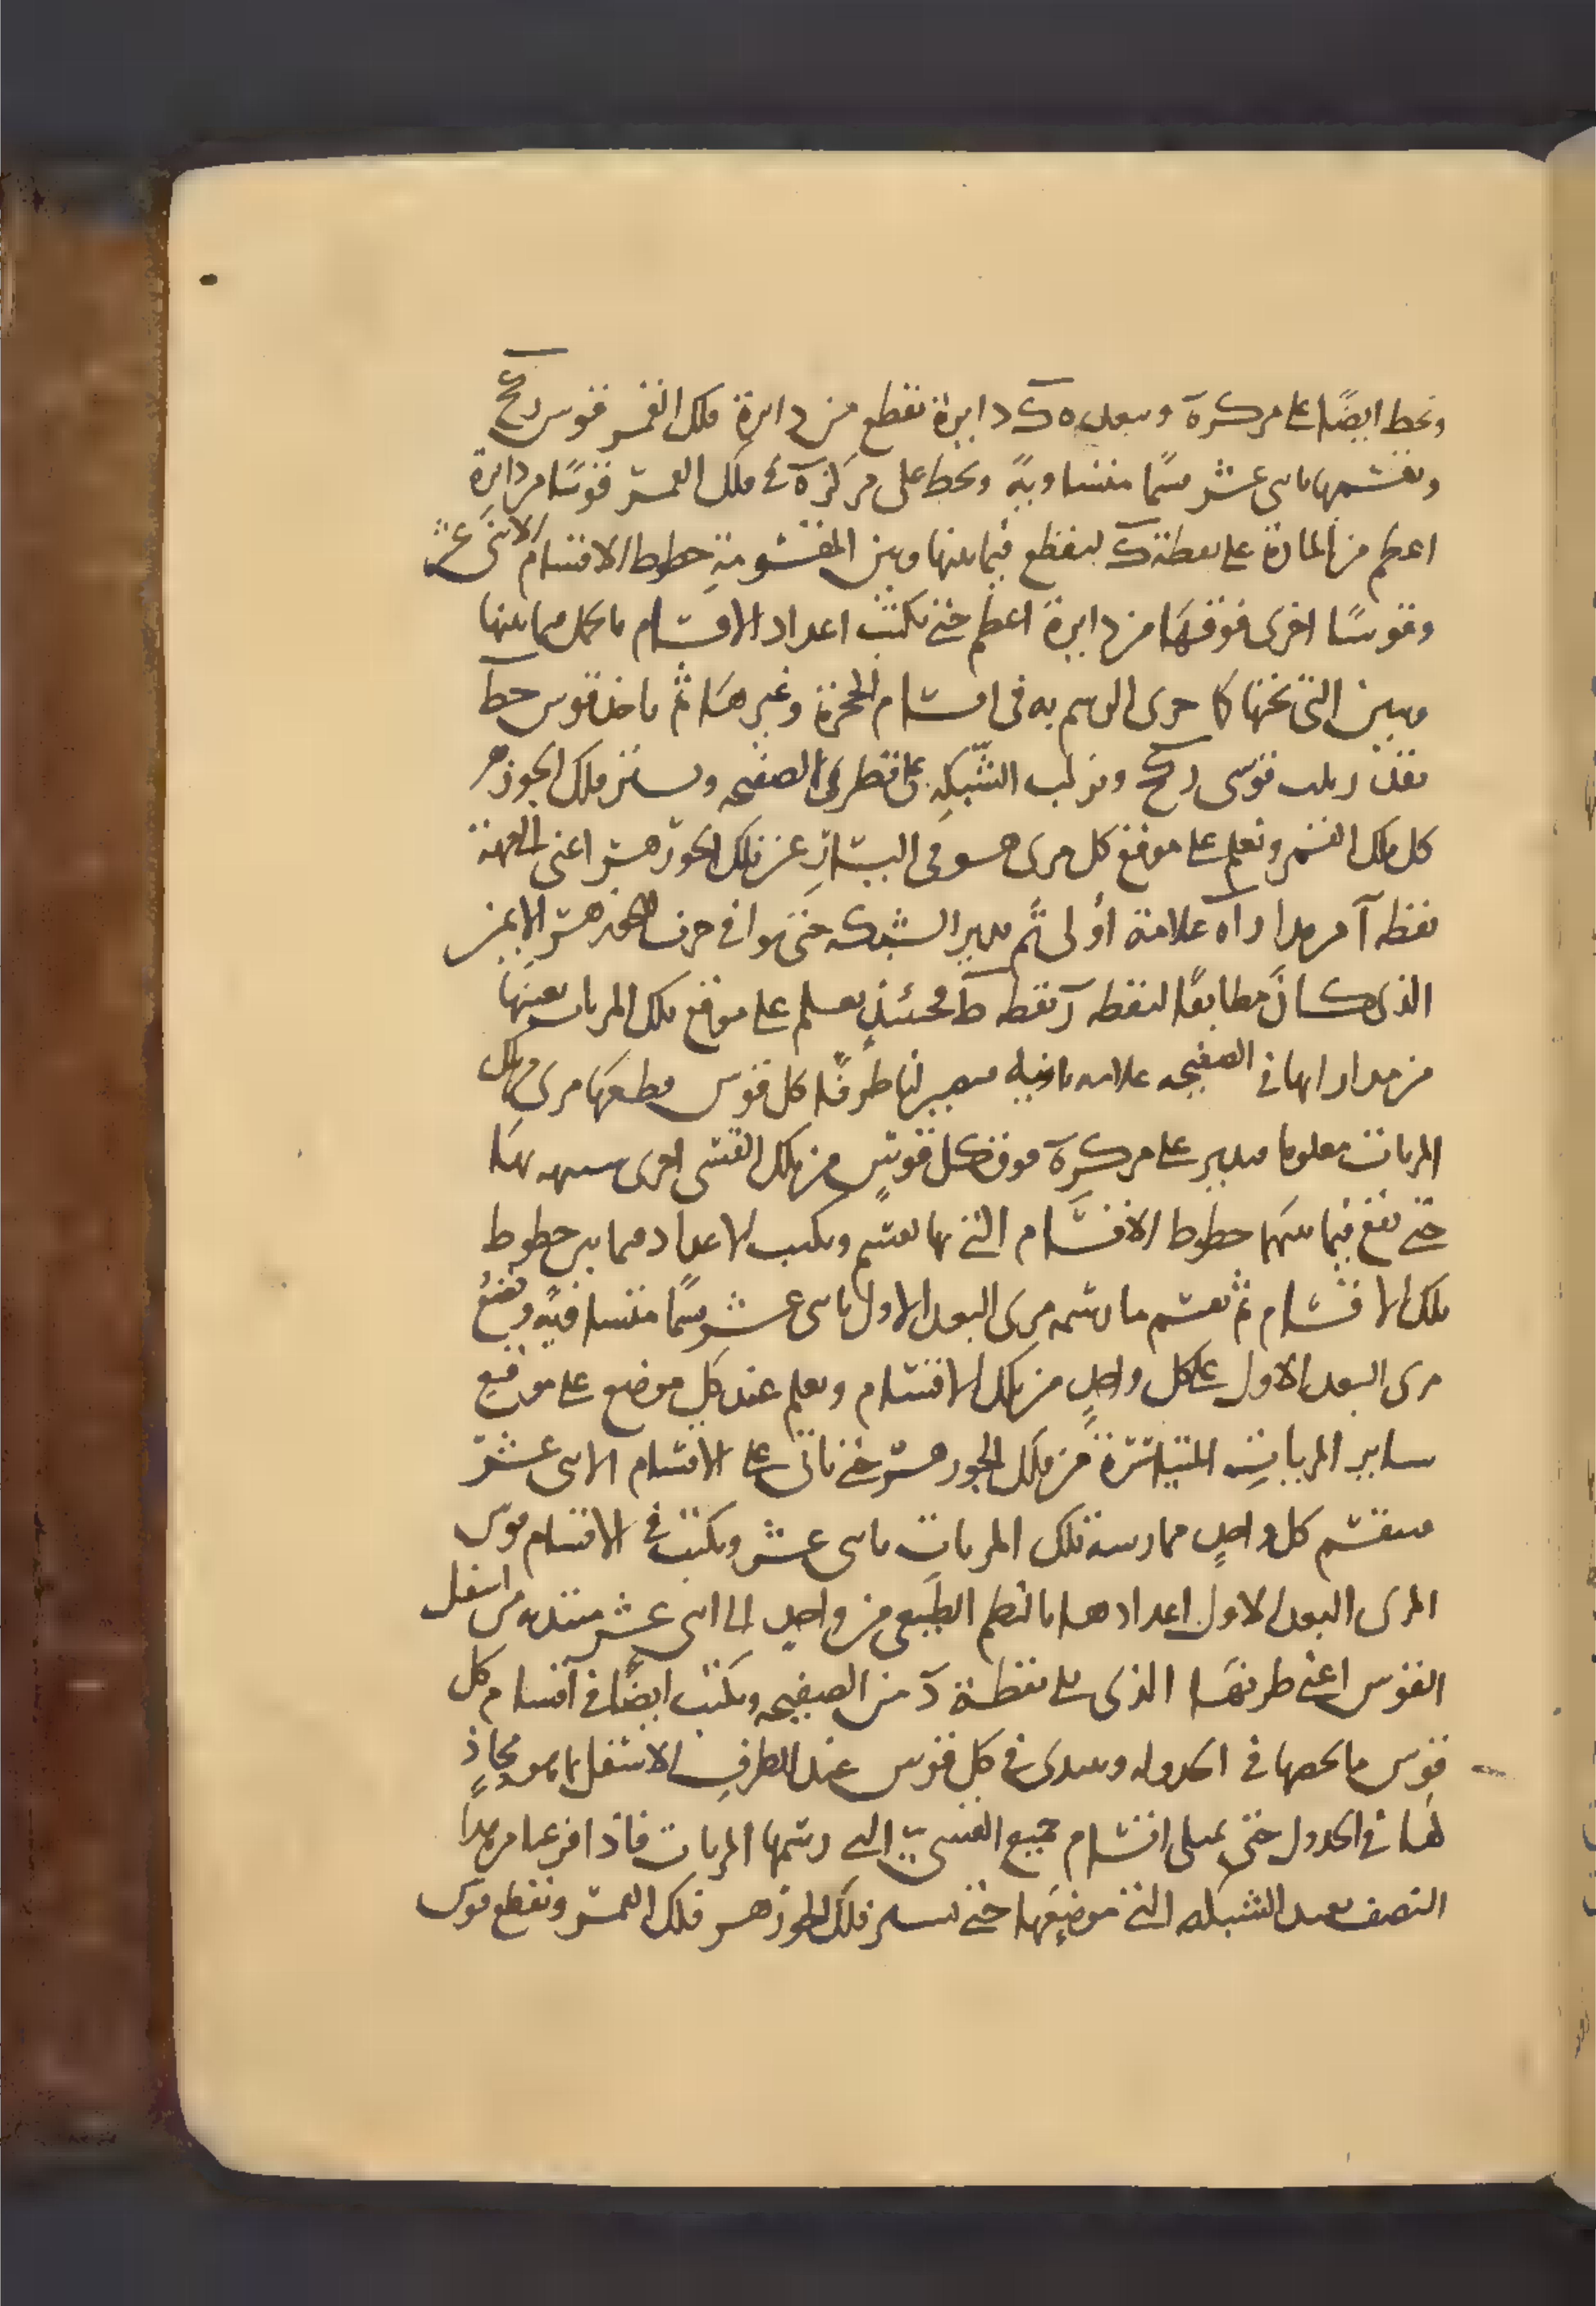 ونخط ايضًا على مركز ه وببعد ه ك دايرة تقطع من دايرة فلك القمر قوس ر ح
ونقسمها باثنى عشر قسمًا متساوية ونخط على مركز ه فى فلك القمر قوسًا من دايرة
اعظم من المارة على نقطة ك ليقطع فيما بينها وبين المقسومة خطوط الاقسام الاثنى عشر
وقوسًا اخرى فوقها من دايرة اعظم حتى نكتب اعداد الاقسام بالجمل فيما بينها
وبين التى تحتها كما جرى الرسم به فى اقسام الحجرة وغيرها ثم ناخذ قوس ح ط
بقدر ثلث قوسى ر ح ونركب الشبكة على قطرى الصفيحة ويستر فلك الجوزهر
كل فلك القمر ونعلم على موقع كل مرى هو فى اليسار عن فلك الجوزهر اعنى الى جهة
نقطه آ من مدار ا ه علامة أولى ثم ندير الشبكه حتى توافى حرف الجوزهر الايمن
الذى كان مطابقًا لنقطه ر نقطه ط فحينئذٍ نعلم على موقع تلك المريات بعينها
من مداراتها فى الصفيحه علامه ثانيه فيصير لنا طرفا كل قوس يقطعها مرى من تلك
المريات معلوما فندير على مركز ه فوق كل قوسٍ من تلك القسى اخرى شبيهه بها
حتى تقع فيما بينهما خطوط الاقسام التى بها نقسم ونكتب الاعداد فيما بين خطوط
تلك الاقسام ثم نقسم ما رسمه مرى البعد الاول باثنى عشر قسمًا متساويةً ونضع
مرى البعد الاول على كل واحدٍ من تلك الاقسام ونعلم عند كل موضع على مواقع
ساير المريات المتياسرة من فلك الجوزهر حتى ناتى على الاقسام الاثنى عشر
فينقسم كل واحدٍ مما رسمه تلك المريات باثنى عشر ونكتب فى الاقسام قوس
المرى البعد الاول اعدادها بالنظم الطبيعى من واحدٍ الى اثنى عشر مبتديه من اسفل
القوس اعنى طرفها الذى يلى نقطة د من الصفيحه ونكتب ايضًا فى اقسام كل
قوس ما يخصها فى الجدول ونبتدى فى كل قوس عند الطرف الاسفل بما هو محاذٍ
لها فى الجدول حتى تمتلى اقسام جميع القسى التى رسمها المريات فاذا فرغنا من هذا
النصف نعيد الشبكه الى موضعها حتى يستر فلك الجوزهر فلك القمر ونقطع قوس